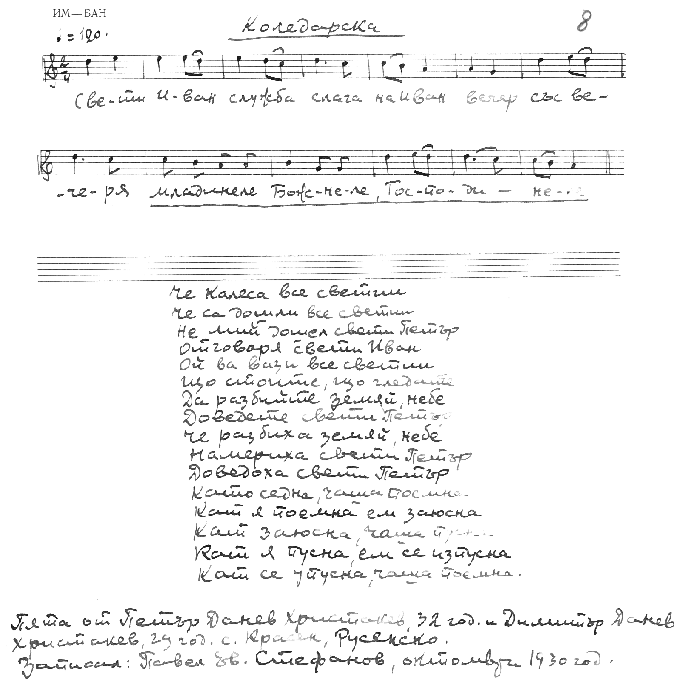 ИМ—БАН
♩ = 120.
Коледарска
8
Све-ти И-ван служба слага на Иван вечер със ве-
-че-ря младинеле Бож-не-ле, Гос-по-ди — не-
Че калеса все светии
Че са дошли все светии
Не мий дошел свети Петър
Отговаря свети Иван
Ой ва вази все светии
Що стоите, що гледате
Да разбийте земяй, небе
Доведете свети Петър
Че разбиха земяй, небе
Намериха свети Петър
Доведоха свети Петър
Като седна, чаша поемна.
Кат я поемна ем заюсна
Кат заюсна, чаша
Кат я пусна, ем се изпусна
Кат се упусна, чаша поемна.
Пята от Петър Данев Христакев, 32 год. и Димитър Данев
Христакев, 29 год. с. Красен, Русенско.
Записал: Павел Ив. Стефанов, октомври 1930 год.